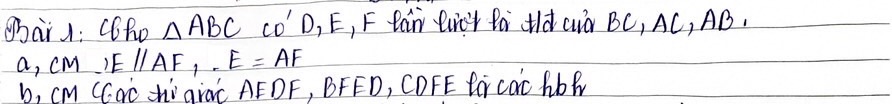 Bài 1: Cho △ABC có D, E, F lần lượt là tđ của BC, AC, AB.
a, CM E // AF, E = AF
b, CM Các tứ giác AEDF, BFED, CDFE là các hbh